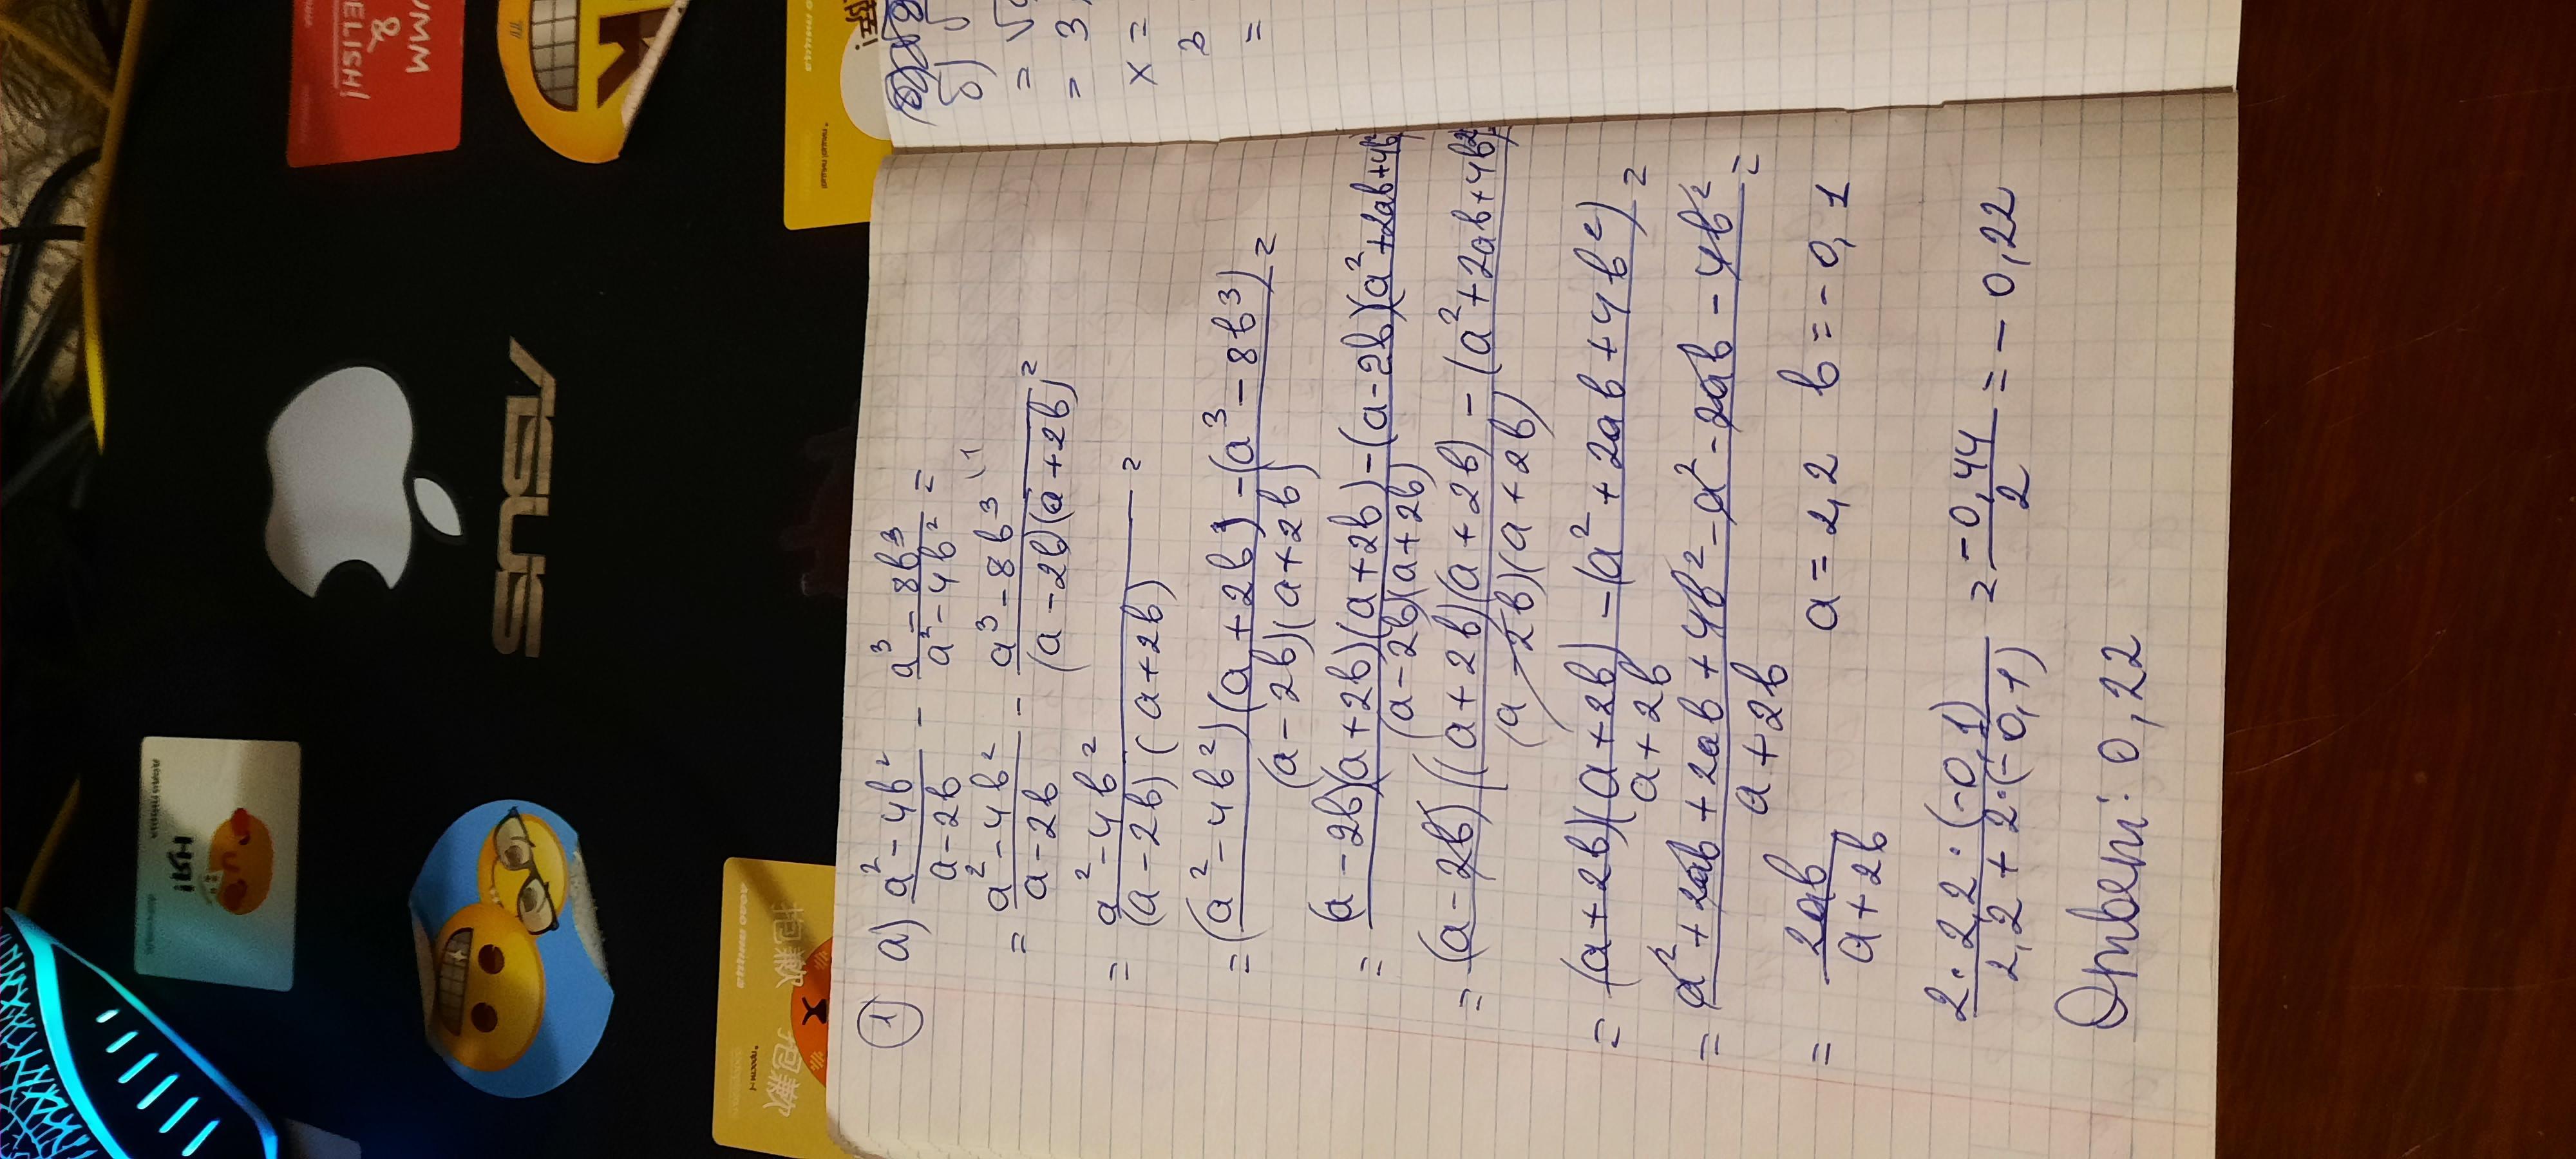 НЯ!
UMM
&
ELISH!
ASUS
① а) a² - 4b² / a - 2b - a³ - 8b³ / a² - 4b² =
= a² - 4b² / a - 2b - a³ - 8b³ \1 / (a - 2b)(a + 2b) =
= a² - 4b² / (a - 2b)(a + 2b) =
= (a² - 4b²)(a + 2b) - (a³ - 8b³) / (a - 2b)(a + 2b) =
= (a - 2b)(a + 2b)(a + 2b) - (a - 2b)(a² + 2ab + 4b² / (a - 2b)(a + 2b)
= (a - 2b)((a + 2b)(a + 2b) - (a² + 2ab + 4b² / (a - 2b)(a + 2b)
= (a + 2b)(a + 2b) - (a² + 2ab + 4b²) / a + 2b =
= a² + 2ab + 2ab + 4b² - a² - 2ab - 4b² / a + 2b =
= 2ab / a + 2b a = 2,2 b = -0,1
2 · 2,2 · (-0,1) / 2,2 + 2 · (-0,1) = -0,44 / 2 = -0,22
Ответ: 0,22
б) √
= √
= 3
x =
=